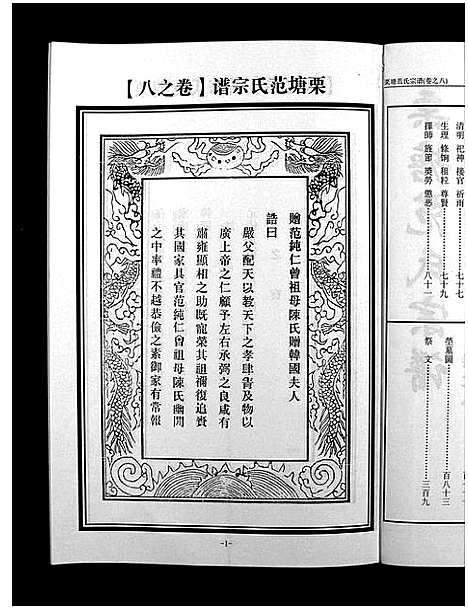 栗塘范氏宗谱【卷之八】
贈范純仁曾祖母陳氏贈韓國夫人
誥曰
嚴父配天以教天下之孝肆眚及物以
廣上帝之仁顧予左右承弼之良咸有
肅雍顯相之助既寵榮其祖禰復追賚
其國家具官范純仁曾祖母陳氏幽閒
之中率禮不越恭儉之素御家有常報
-1-
栗塘范氏宗譜(卷之八)
清明 祀神 接官 祈雨
生理 修餉 租粒 尊賢 七十九
擇師 旌節 獎勞 懲惡 八十一
塋墓圖 百八十三
祭文 三百九